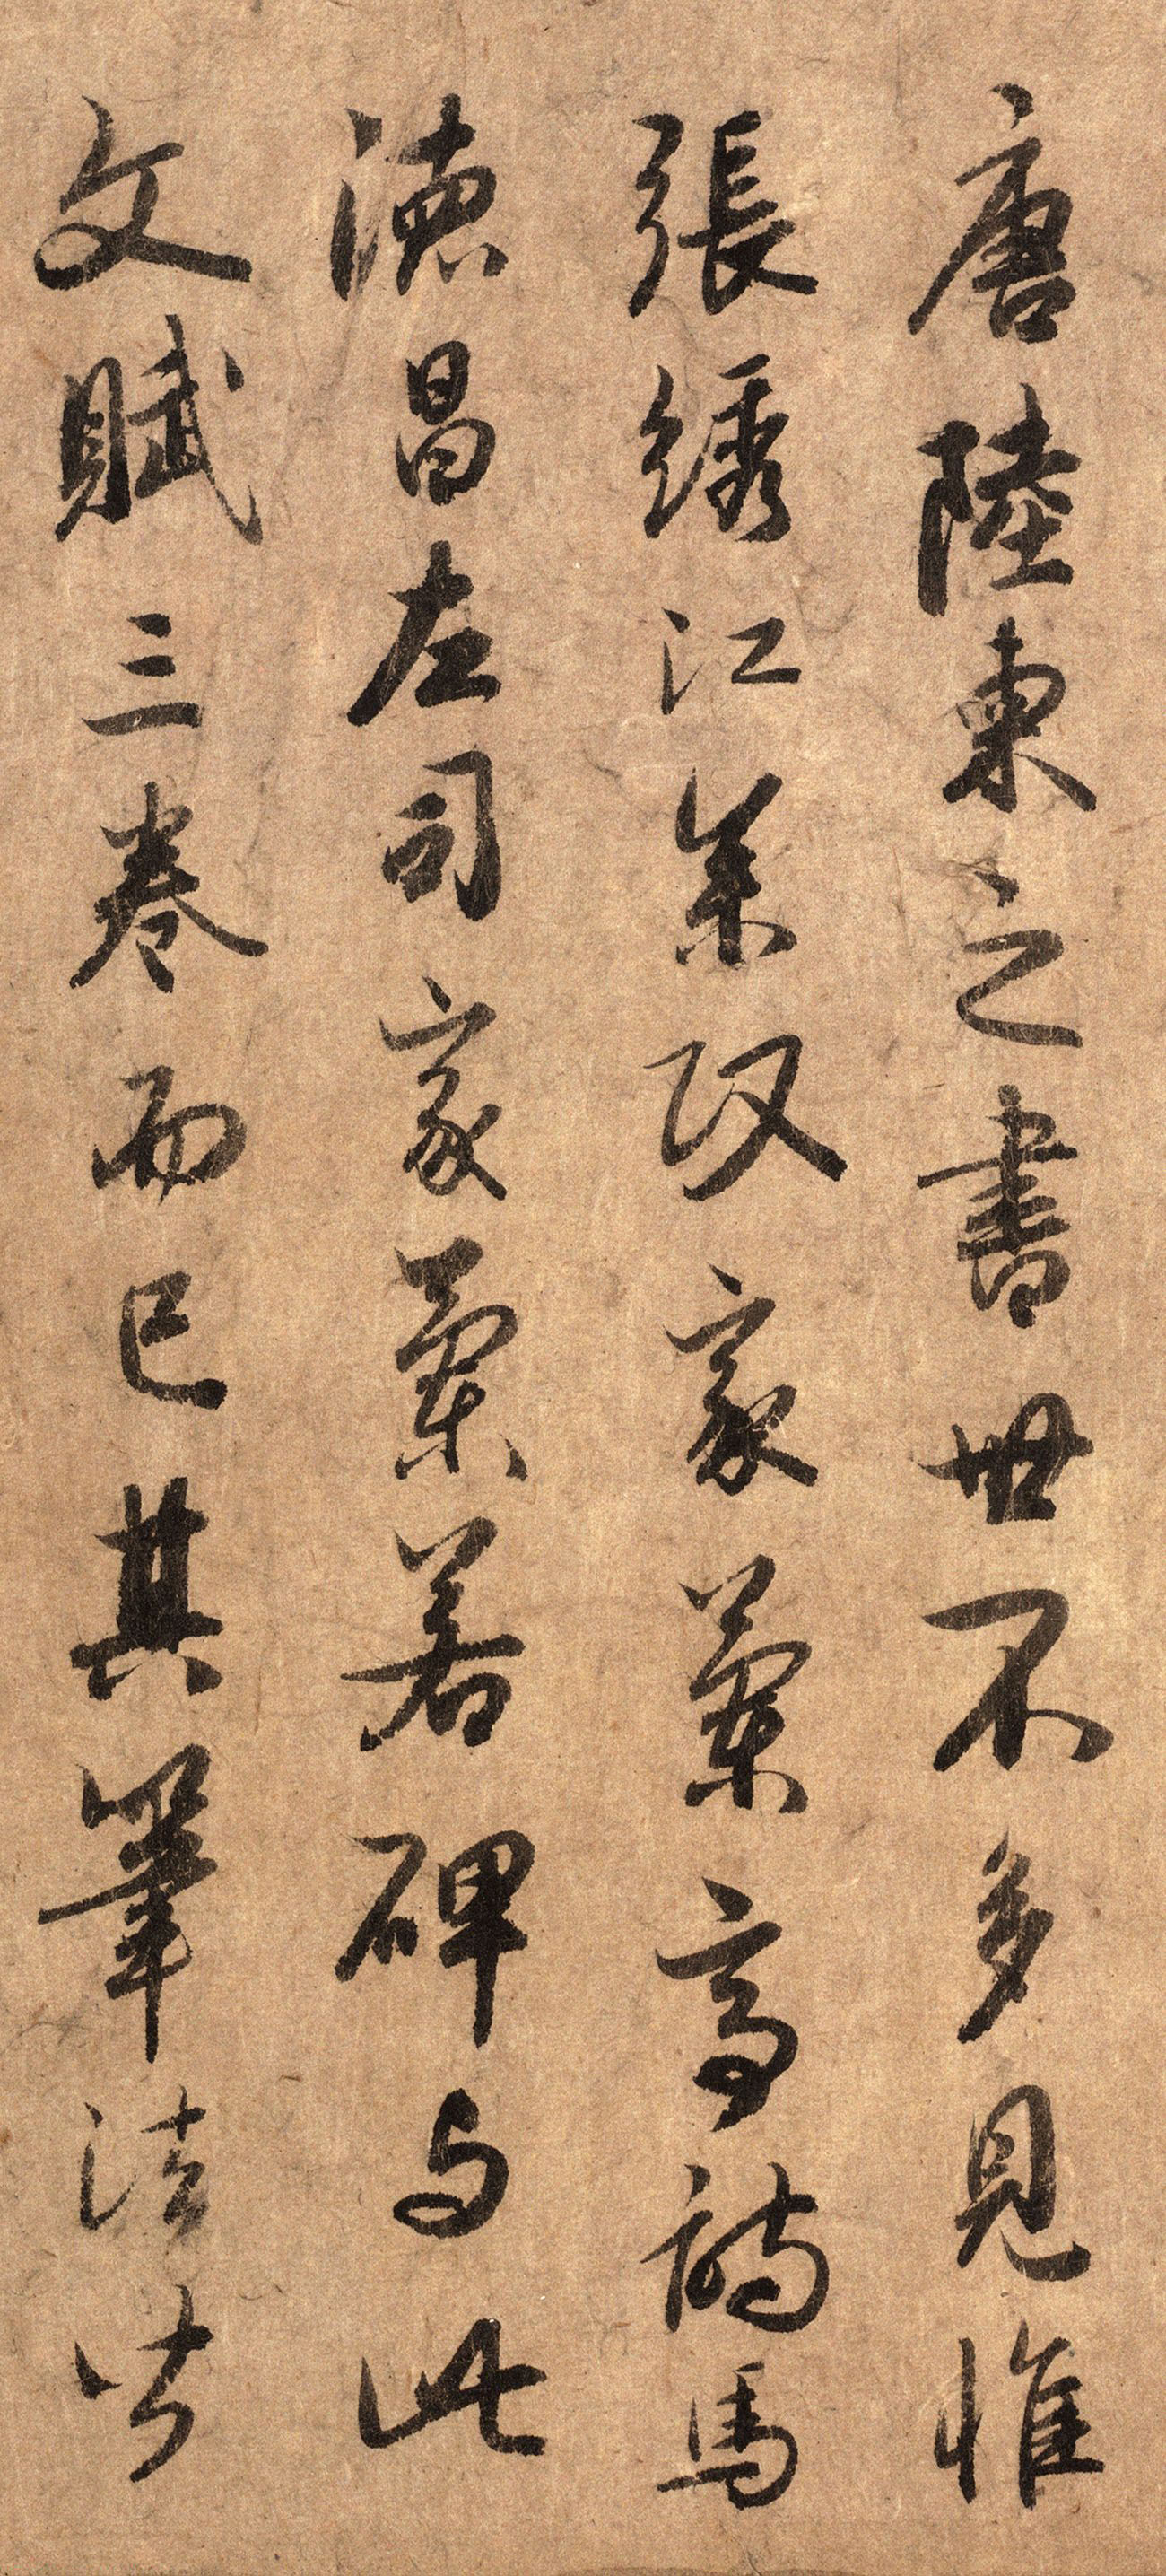 唐陸柬之書世不多見惟
張綉江參政家蘭亭詩馬
德昌左司家蘭若碑与此
文賦三卷而已其筆法皆